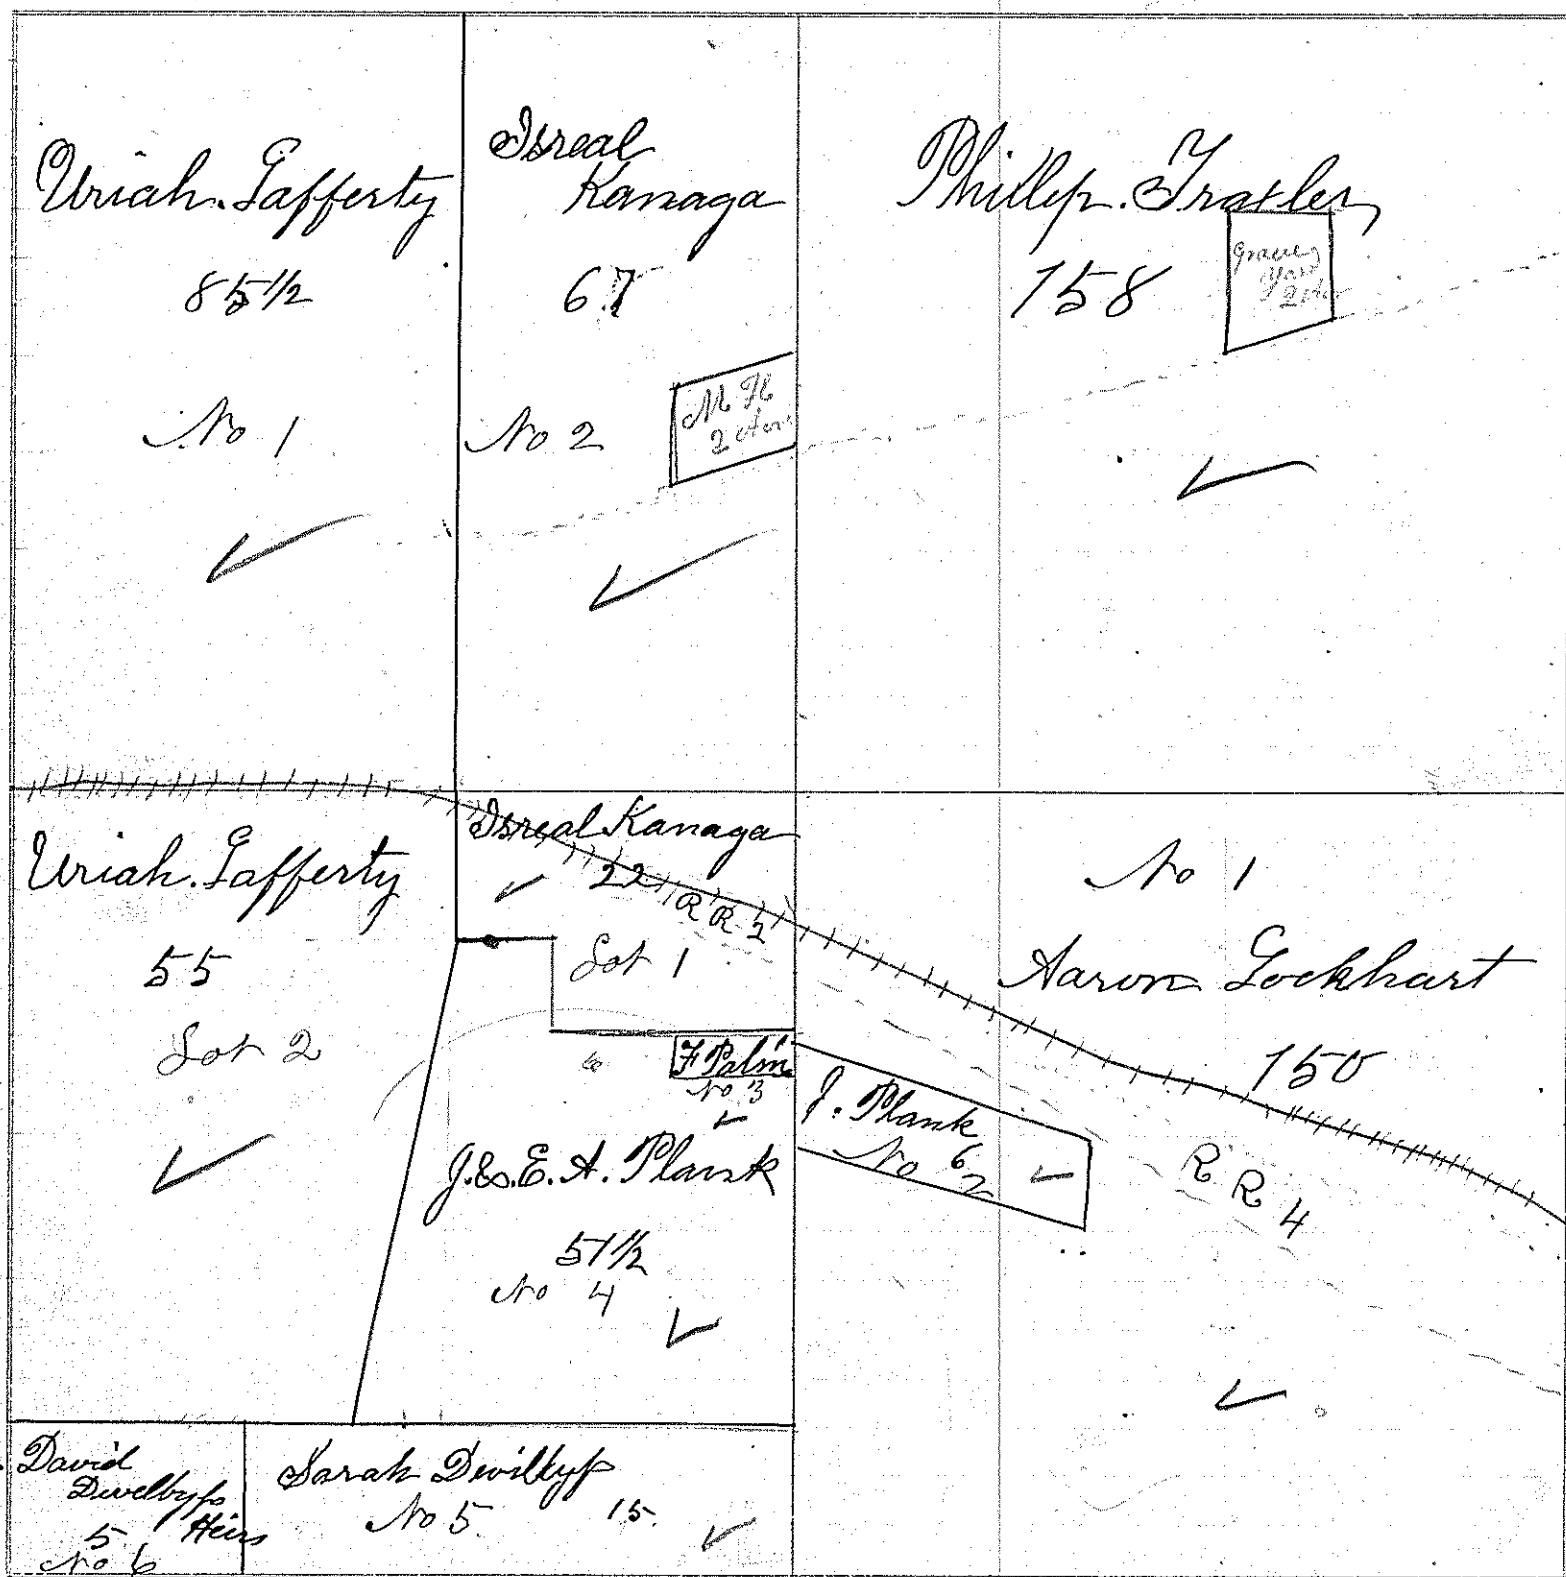 Uriah. Lafferty
85 1/2
No 1
Isreal
Kanaga
67
No 2
M H
2 Acre
Phillip. Traxler
158
Grave
Yard
2 Acr
Uriah. Lafferty
55
Lot 2
Isreal Kanaga
22
R R 2
Lot 1
F Palm
No 3
J. & E. A. Plank
51 1/2
No 4
No 1
Aaron Lockhart
150
J. Plank
6
No 2
R R 4
David
Divelbyss
5 Heirs
No 6
Sarah Devilbyss
No 5 15